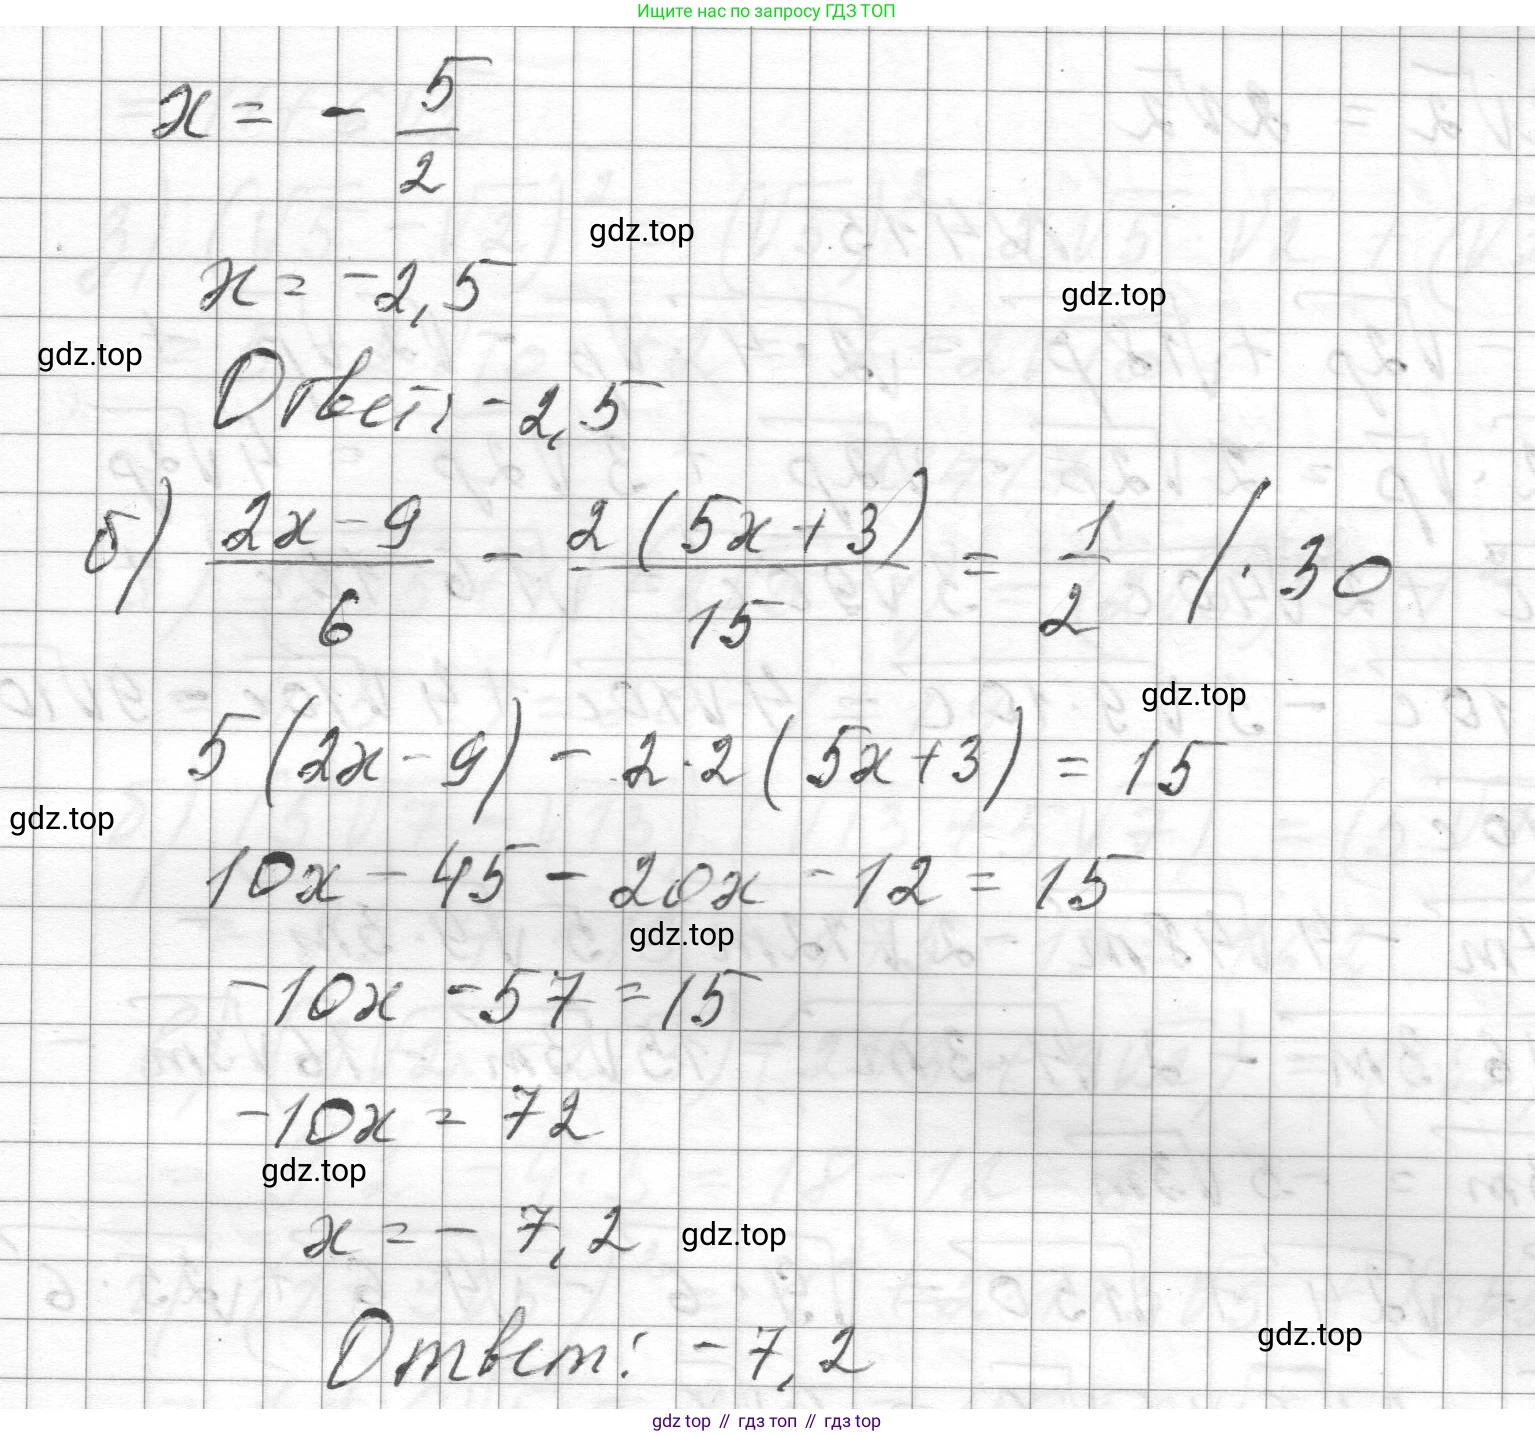 Ищите нас по запросу ГДЗ ТОП
x = - 5/2
gdz.top
x = -2,5
gdz.top
gdz.top
Ответ: -2,5
б) (2x - 9)/6 - 2(5x + 3)/15 = 1/2 / · 30
gdz.top
5(2x - 9) - 2·2(5x + 3) = 15
gdz.top
10x - 45 - 20x - 12 = 15
gdz.top
-10x - 57 = 15
-10x = 72
gdz.top
x = - 7,2
gdz.top
Ответ: -7,2
gdz.top
gdz top // гдз топ // гдз top